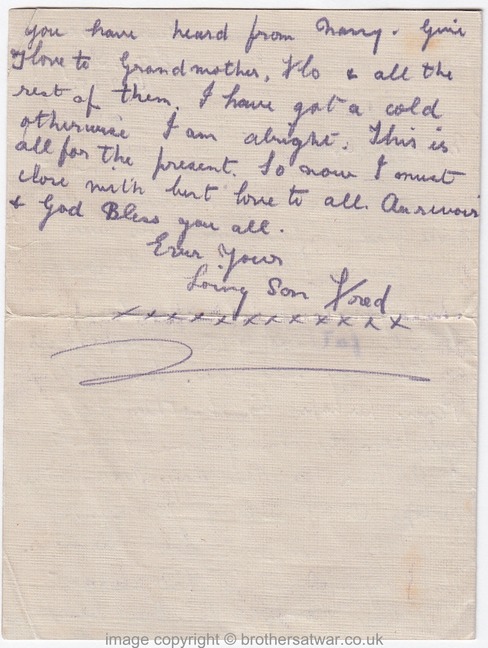 you have heard from Harry. Give
love to Grandmother, Flo & all the
rest of them. I have got a cold
otherwise I am alright. This is
all for the present. So now I must
close with best love to all. Aurevoir
& God Bless you all.
Ever Yours
Loving Son Fred
x x x x x x x x x x x x
image copyright © brothersatwar.co.uk